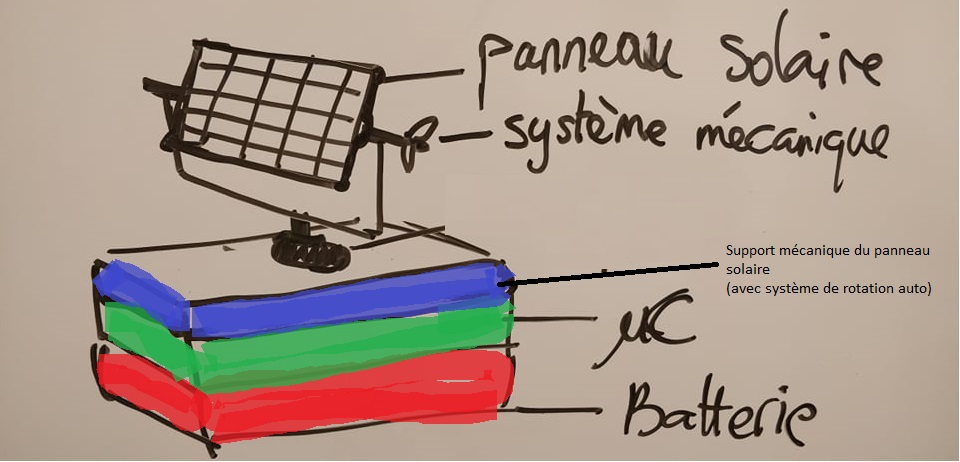 panneau solaire
système mécanique
Support mécanique du panneau
solaire
(avec système de rotation auto)
µC
Batterie